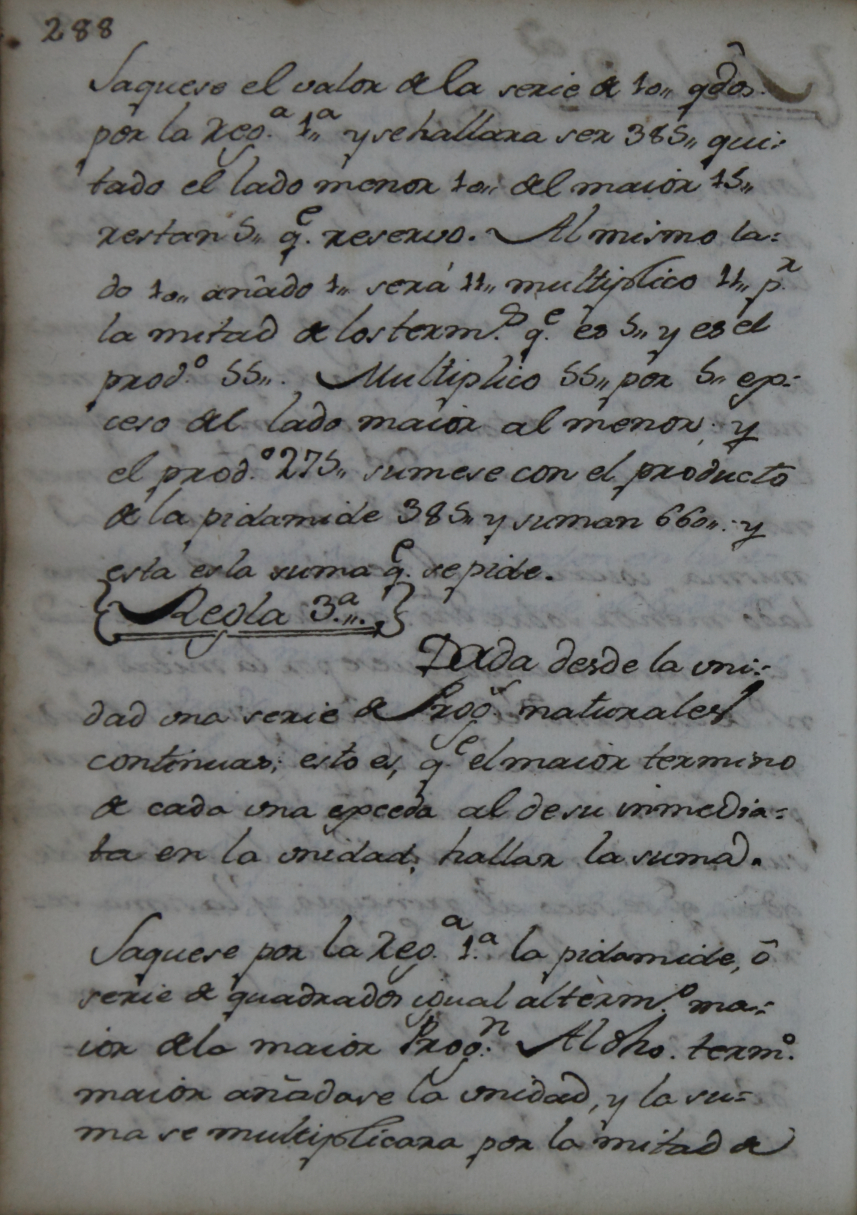 288
Saquese el valor de la serie de 10,, qdos.
por la Reg.ª 1,,ª y se hallara ser 385,, qui-
tado el lado menor 10,, del maior 15,,
restan 5,, q.e reservo. Al mismo la=
do 10,, añado 1,, será 11,, multiplico 11,, p.r
la mitad de los term.s q.e es 5,, y es el
prod.º 55,,. Multiplico 55,, por 5,, ex-
ceso del lado maior al menor; y
el prod.º 275,, sumese con el producto
de la pidamide 385,, y suman 660,,: y
esta es la suma q.e se pide.
{Regla 3.ª,,.}
Dada desde la uni=
dad una serie de Prog.s naturales
continuas; esto es, q.e el maior termino
de cada una exceda al de su inmedia=
ta en la unidad; hallar la suma.
Saquese por la Reg.ª 1.ª la pidamide, ô
serie de quadrados igual al term.º ma=
ior de la maior Prog.n Al dho. term.º
maior añadase la unidad, y la su=
ma se multiplicara por la mitad de